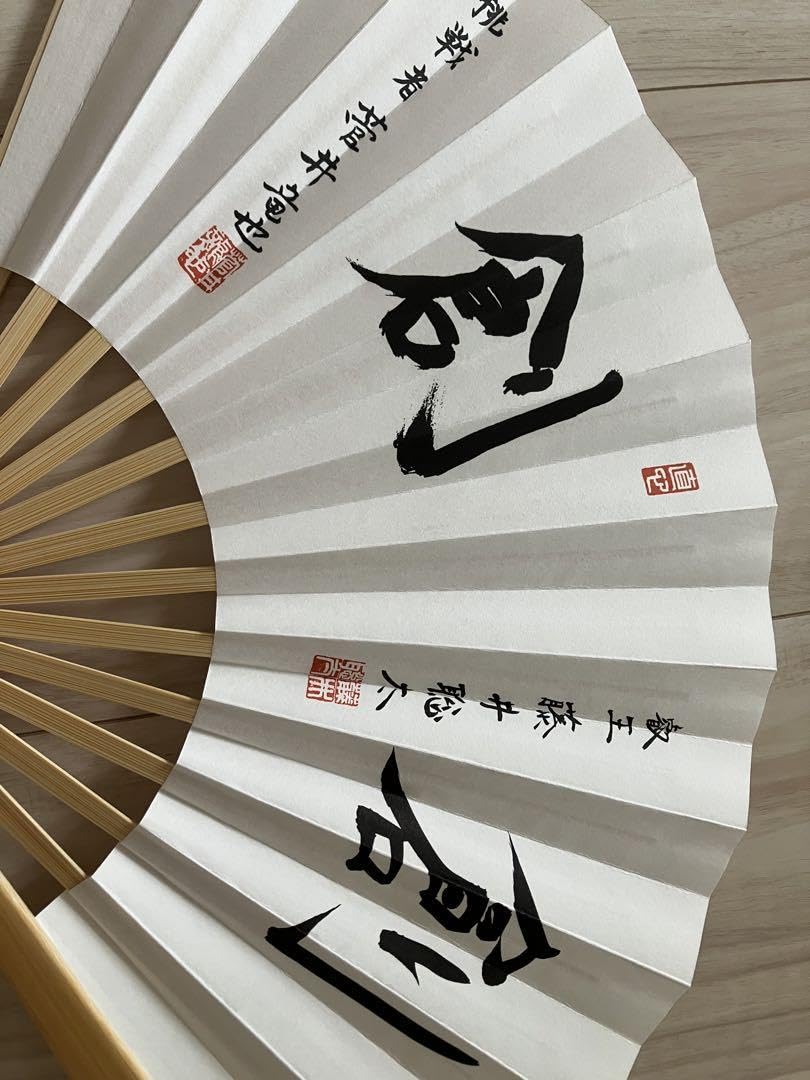 創
叡王 藤井聡太
直心
創
挑戦者 菅井竜也